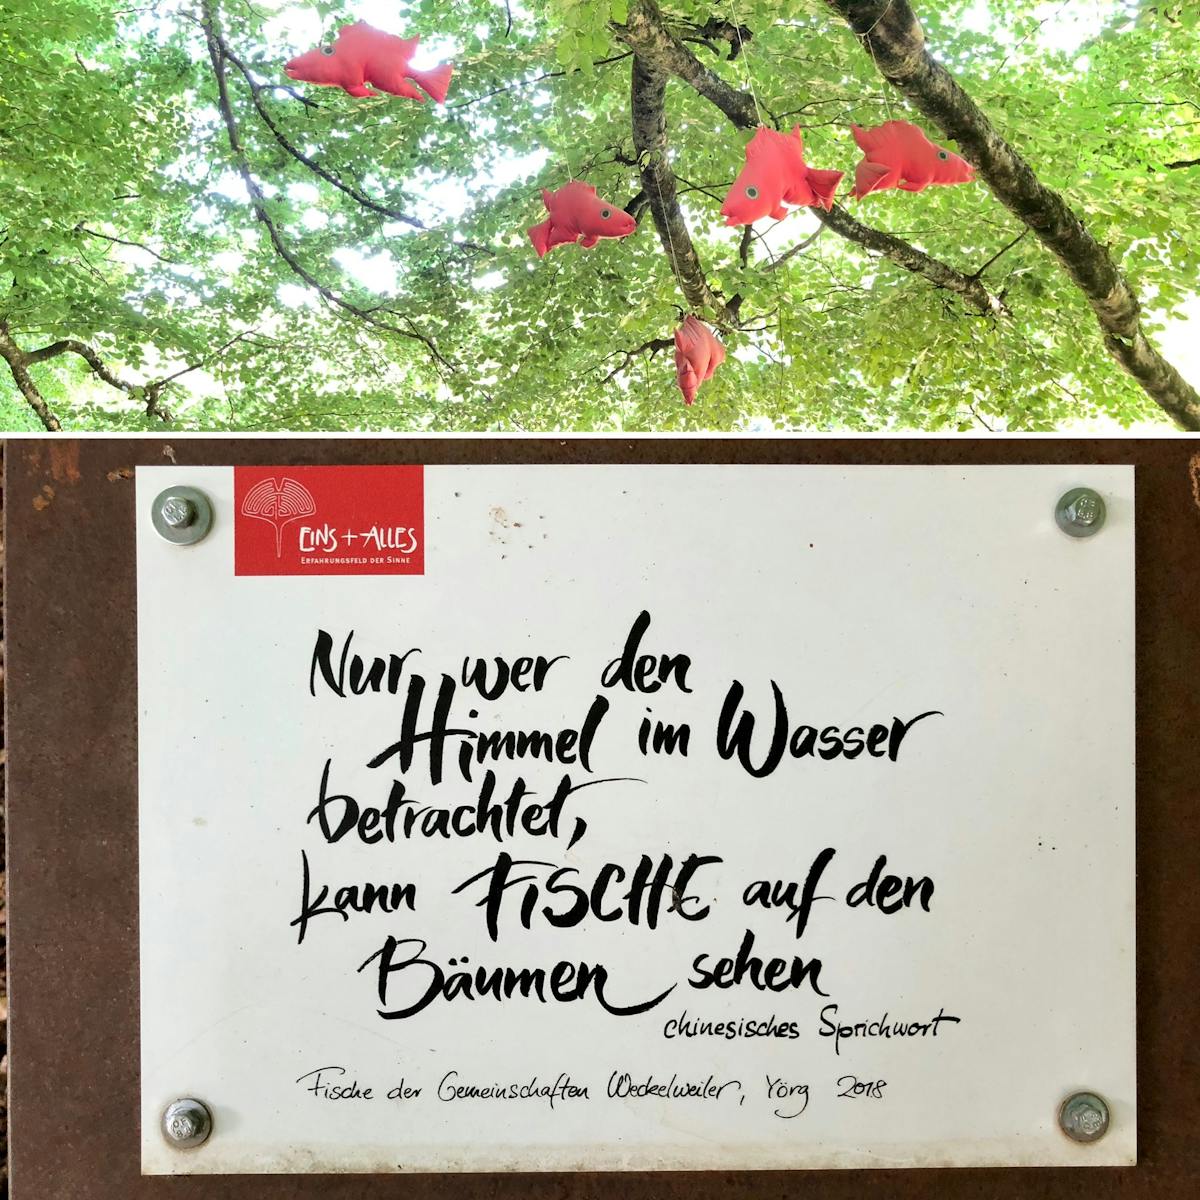 EiNS + ALLES
ERFAHRUNGSFELD DER SINNE
Nur wer den
Himmel im Wasser
betrachtet,
kann FiSCHE auf den
Bäumen sehen
chinesisches Sprichwort
Fische der Gemeinschaften Weckelweiler, Yörg 2018